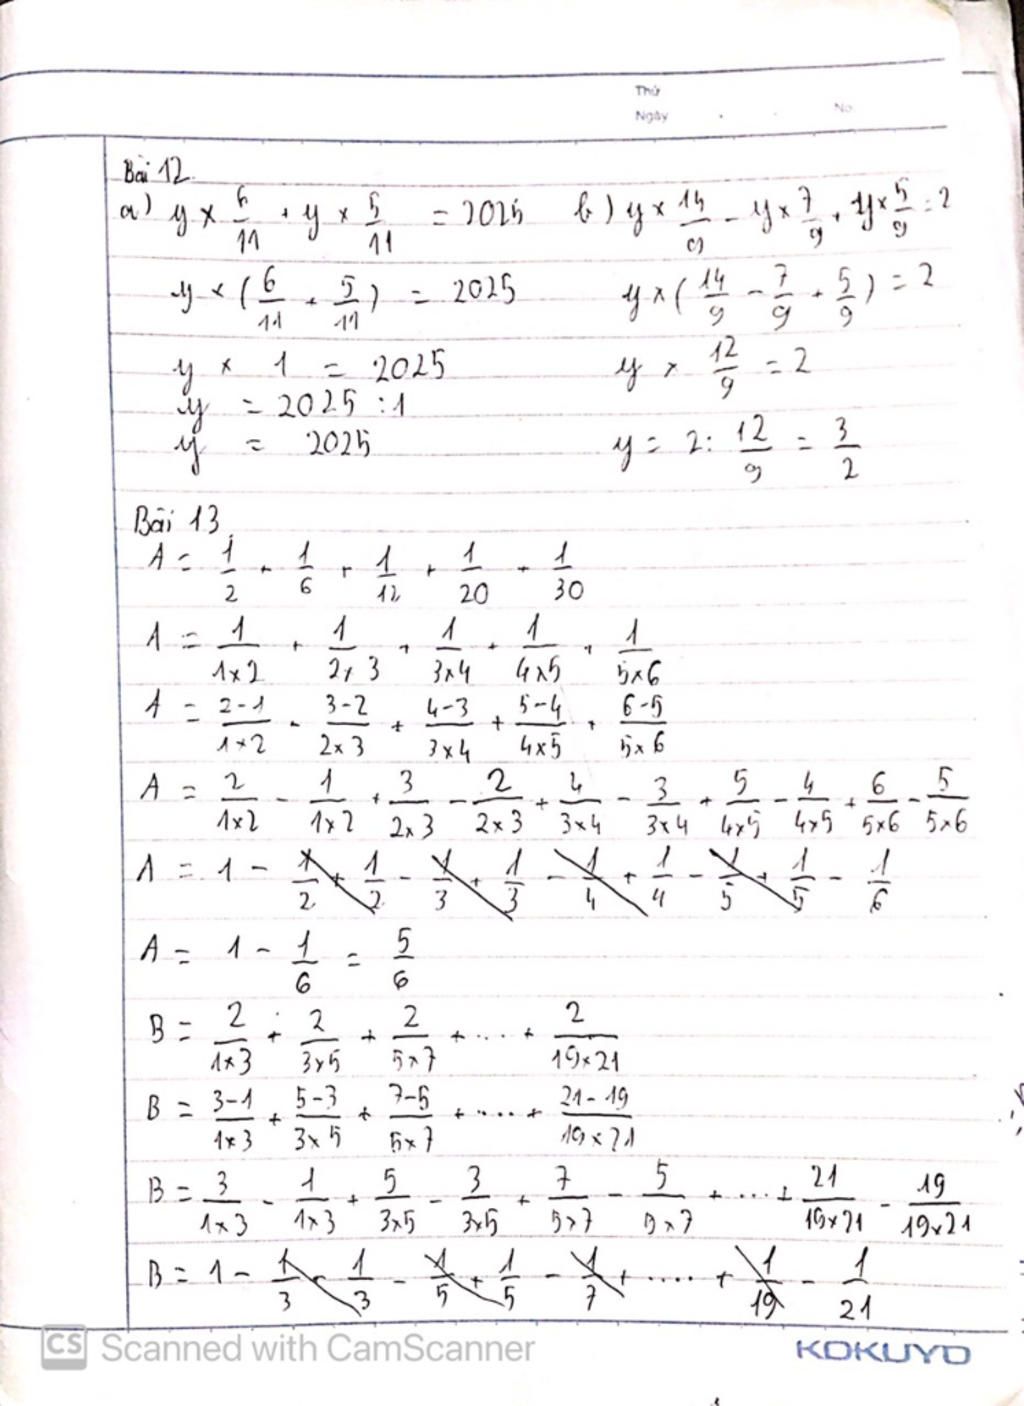 Thứ
Ngày No.
Bài 12.
a) y × 6/11 + y × 5/11 = 2025 b) y × 14/9 - y × 7/9 + y × 5/9 = 2
y × (6/11 + 5/11) = 2025 y × (14/9 - 7/9 + 5/9) = 2
y × 1 = 2025 y × 12/9 = 2
y = 2025 : 1
y = 2025 y = 2 : 12/9 = 3/2
Bài 13
A = 1/2 + 1/6 + 1/12 + 1/20 + 1/30
A = 1/1×2 + 1/2×3 + 1/3×4 + 1/4×5 + 1/5×6
A = 2-1/1×2 - 3-2/2×3 + 4-3/3×4 + 5-4/4×5 + 6-5/5×6
A = 2/1×2 - 1/1×2 + 3/2×3 - 2/2×3 + 4/3×4 - 3/3×4 + 5/4×5 - 4/4×5 + 6/5×6 - 5/5×6
A = 1 - 1/2 + 1/2 - 1/3 + 1/3 - 1/4 + 1/4 - 1/5 + 1/5 - 1/6
A = 1 - 1/6 = 5/6
B = 2/1×3 + 2/3×5 + 2/5×7 + .... + 2/19×21
B = 3-1/1×3 + 5-3/3×5 + 7-5/5×7 + .... + 21-19/19×21
B = 3/1×3 - 1/1×3 + 5/3×5 - 3/3×5 + 7/5×7 - 5/5×7 + ... + 21/19×21 - 19/19×21
B = 1 - 1/3 + 1/3 - 1/5 + 1/5 - 1/7 + .... + 1/19 - 1/21
CS Scanned with CamScanner
KOKUYO